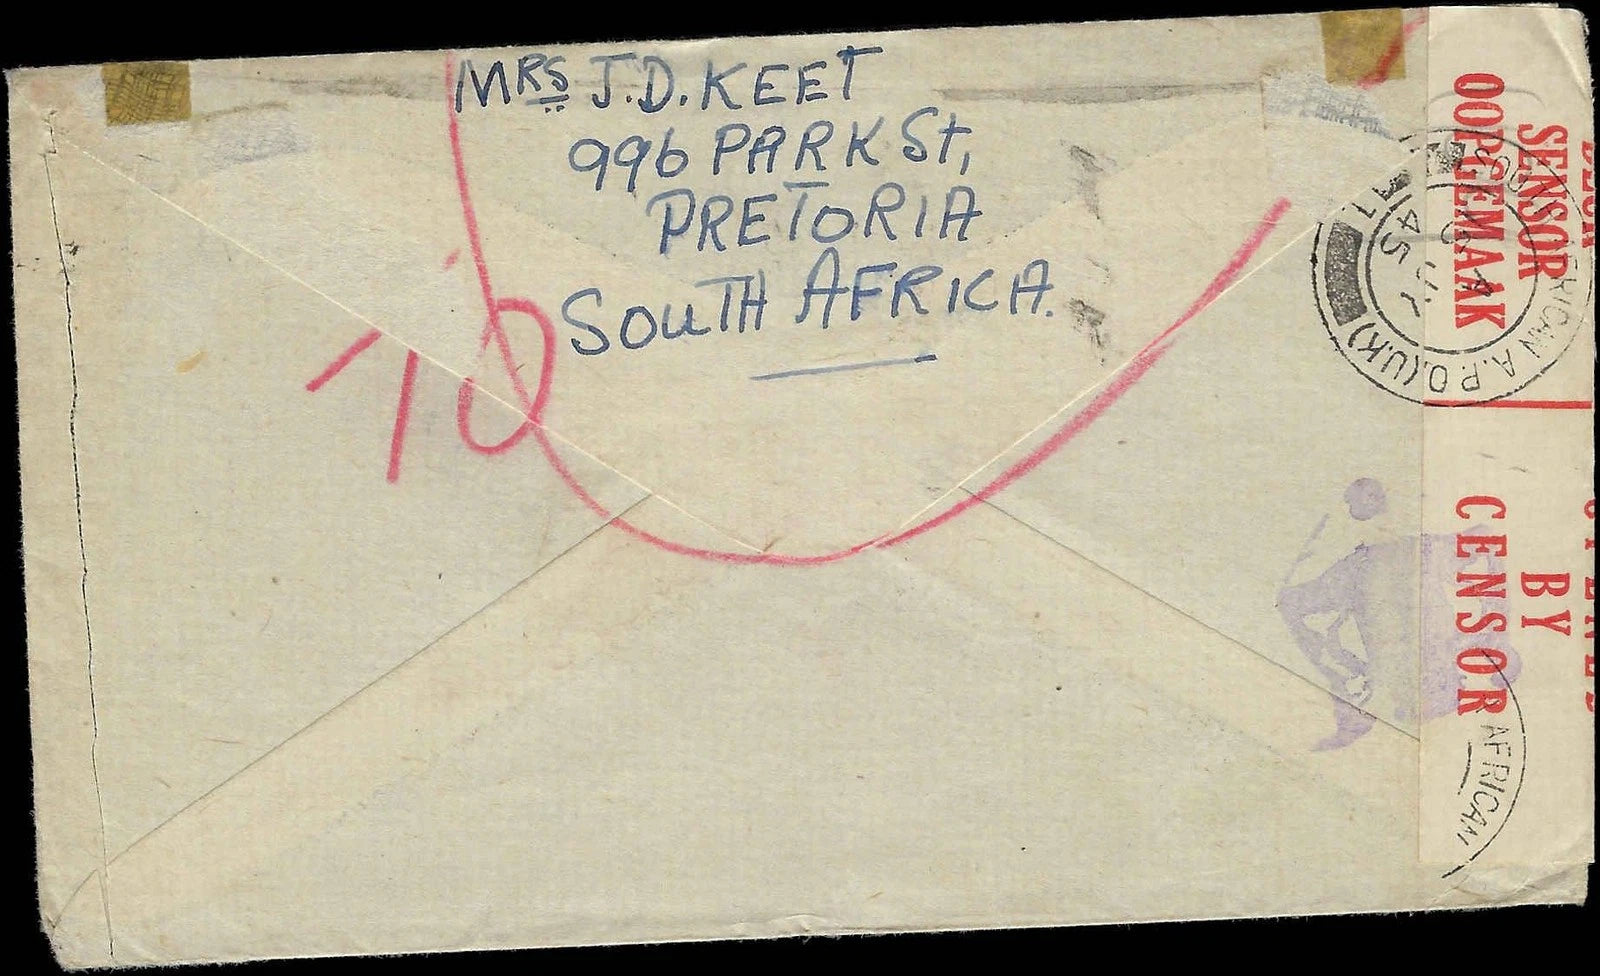 MRS J.D. KEET
996 PARK St,
PRETORIA
SOUTH AFRICA.
10
DEUR
SENSOR
OOPGEMAAK
BY
CENSOR
AFRICAN A.P.O. (U.K)
45
AFRICAN